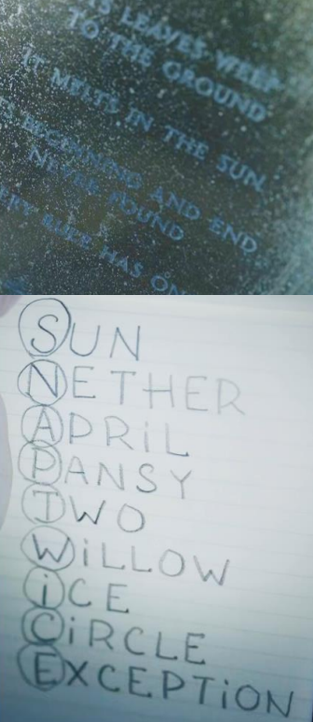 LEAVES WEEP
TO THE GROUND
IT MELTS IN THE SUN
BEGINNING AND END
NEVER FOUND
RULE HAS
SUN
NETHER
APRiL
PANSY
TWO
WiLLOW
iCE
CiRCLE
EXCEPTiON